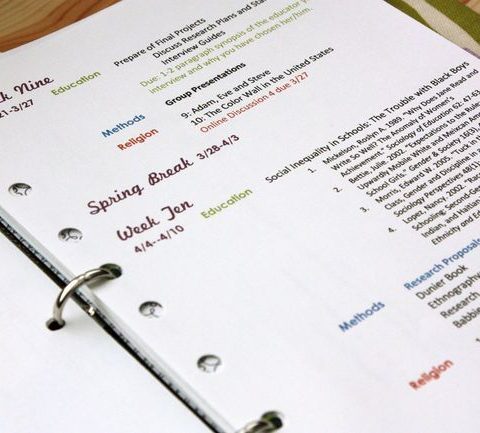 Prepare of Final Projects
Discuss Research Plans and
Interview Guides
Nine
/21-3/27
Education
Due: 1-2 paragraph synopsis of the educator
interview and why you have chosen her/him.
Group Presentations
Methods
9: Adam, Eve and Steve
10: The Color Wall in the United States
Religion
Online Discussion 4 due 3/27
Spring Break 3/28-4/3
Week Ten
4/4--4/10
Education
Social Inequality in Schools: The Trouble with Black Boys
1. Mickelson, Roslyn A. 1989. "Why Does Jane Read and
Write So Well? The Anomaly of Women's
Achievement." Sociology of Education 62: 47-63.
2. Bettie, Julie. 2002. "Expectations to the Rule:
Upwardly Mobile White and Meixcan American
School Girls." Gender & Society 16(3)
3. Morris, Edward W. 2005. "Tuck in
Class, Gender and Discipline in a
Sociology Perspective 48(1)
4. Lopez, Nancy. 2002. "Race
Schooling: Second-Gen
Indian, and Haitian
Ethnicity and Ed
Methods
Research Proposals
Dunier Book
Ethnography
Research
Babbie
Religion